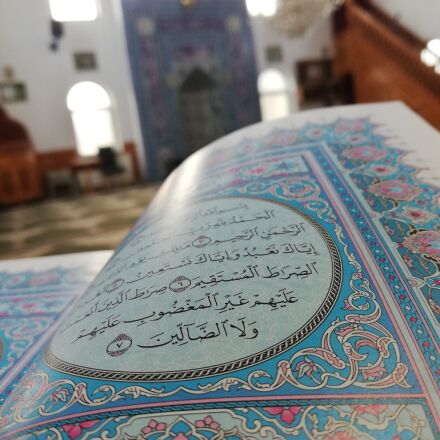 بِسْمِ اللَّهِ
الْحَمْدُ لِلَّهِ رَبِّ
الرَّحْمٰنِ الرَّحِيمِ ﴿٣﴾ مَالِكِ يَوْمِ الدِّينِ
اِيَّاكَ نَعْبُدُ وَاِيَّاكَ نَسْتَعِينُ ﴿٥﴾
الصِّرَاطَ الْمُسْتَقِيمَ ﴿٦﴾ صِرَاطَ الَّذِينَ اَنْعَمْتَ
عَلَيْهِمْ غَيْرِ الْمَغْضُوبِ عَلَيْهِمْ
وَلَا الضَّالِّينَ ﴿٧﴾